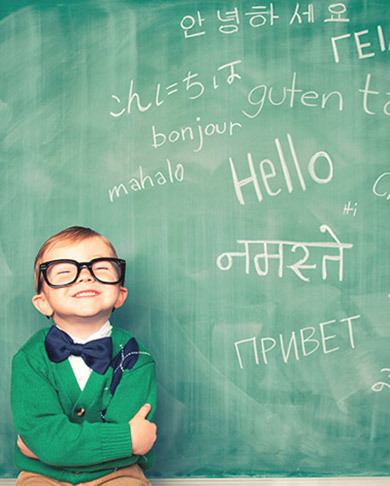 안녕하세요
ΓΕΙ
こんにちは
guten ta
bonjour
Hello
mahalo
Hi
नमस्ते
ПРИВЕТ